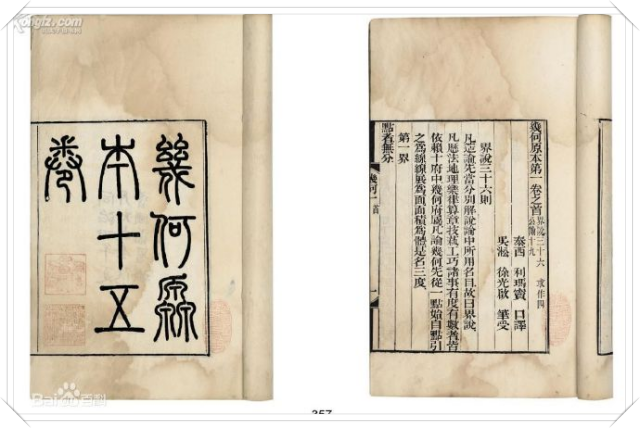 kongfz.com
幾何原
本十五
卷
幾何原本第一卷之首 界說三十六 求作四
公論十九
泰西 利瑪竇 口譯
吳淞 徐光啟 筆受
界說三十六則
凡造論先當分別解說論中所用名目故曰界說
凡曆法地理樂律算章技藝工巧諸事有度有數者皆
依賴十府中幾何府屬凡論幾何先從一點始自點引
之爲線線展爲面面積爲體是名三度
第一界
點者無分
幾何一首
Baidu百科
357